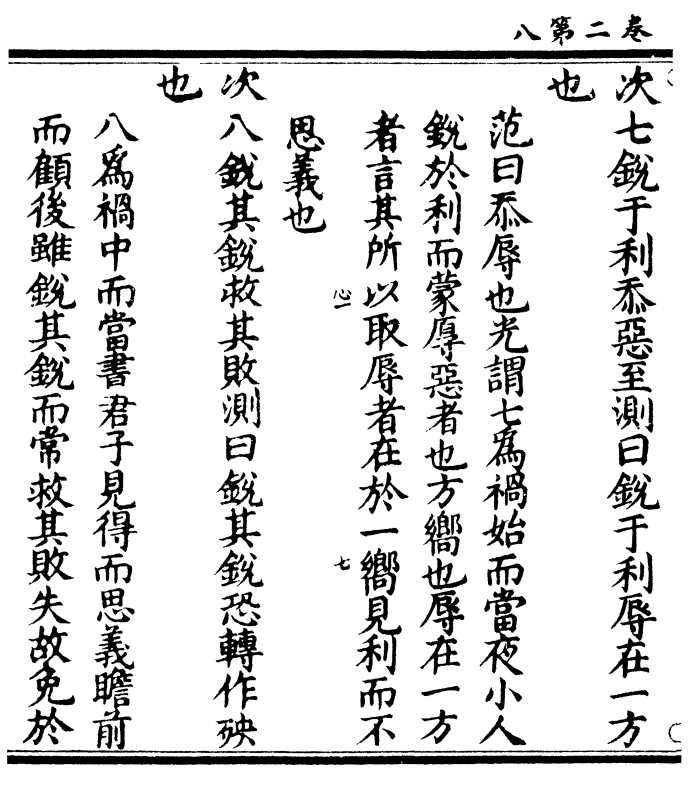 卷二第八
次七銳于利忝惡至測曰銳于利辱在一方
也
范曰忝辱也光謂七爲禍始而當夜小人
銳於利而蒙辱惡者也方嚮也辱在一方
者言其所以取辱者在於一嚮見利而不
心一
七
思義也
次八銳其銳救其敗測曰銳其銳恐轉作殃
也
八爲禍中而當晝君子見得而思義瞻前
而顧後雖銳其銳而常救其敗失故免於